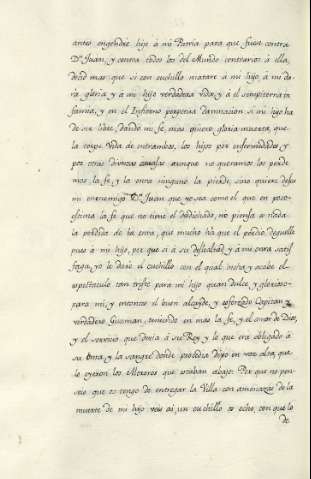 antes engendre hijo á mi Patria para que fuese contra
Dn. Juan, y contra todos los del Mundo contrarios á ella,
decid mas: que si con cuchillo matare á mi hijo, á mi da-
rá gloria y á mi hijo verdadera vida, y á el sempiterna in-
famia, y en el Infierno perpetua damnacion si mi hijo ha
de ser libre, dando mi fe, mas quiero gloria muerta, que
la torpe vida de entrambos, los hijos por enfermedades y
por otras diversas causas aunque no queramos los perde-
mos, la fe, y la otra ninguno la pierde, sino quiere
mi enemigo Dn. Juan que yo sea como el que en poco
estima la fe que no tiene el desdichado, no piensa a nada
la perdida de la ajena, que mucho ha que el perdio,
pues á mi hijo, por que si á su deslealtad y á mi cara satis-
faga, yo le daré el cuchillo con el qual meta y acabe el
espectaculo tan triste para mi hijo quan dulce, y glorioso
para mi, y entonces el buen alcayde, y esforzado Capitan y
verdadero Guzman, teniendo en mas la fe, y el amor de Dios,
y el servicio que devia á su Rey y lo que era obligado á
su honra, y la sangre donde procedia dijo en voz alta, que
lo oyeron los Moros que estaban abajo: Por que no pen-
seis que os tengo de entregar la Villa con amenazas de la
muerte de mi hijo veis ai un cuchillo os echo, con que lo
de